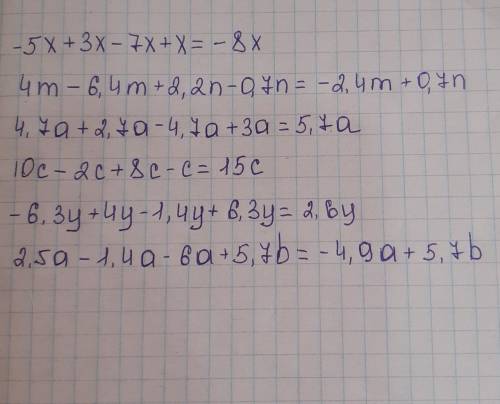 -5x+3x-7x+x=-8x
4m-6,4m+2,2n-0,7n=-2,4m+0,7n
4,7a+2,7a-4,7a+3a=5,7a
10c-2c+8c-c=15c
-6,3y+4y-1,4y+6,3y=2,6y
2,5a-1,4a-6a+5,7b=-4,9a+5,7b